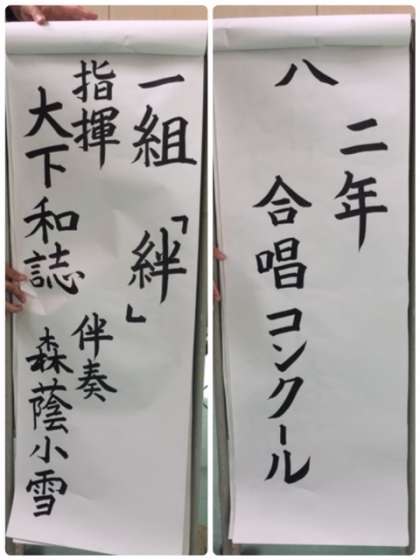 八
二年
合唱コンクール
一組「絆」
指揮
大下和誌
伴奏
森蔭小雪